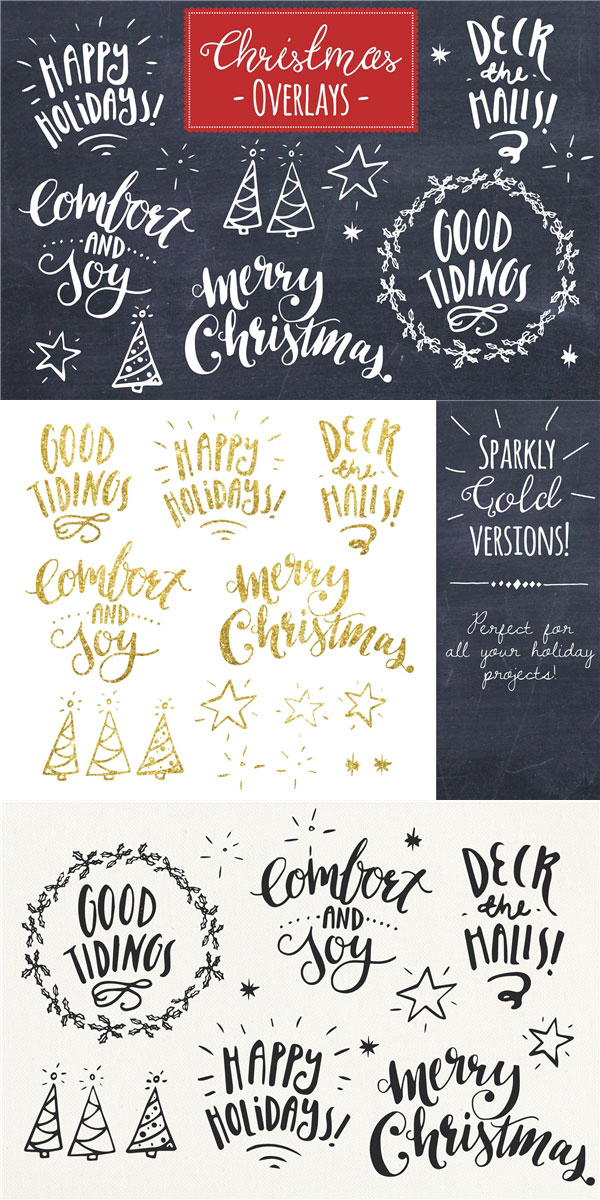 HAPPY
HOLIDAYS!
Christmas
- OVERLAYS -
DECK
the
HALLS!
Comfort
AND
Joy
GOOD
TIDINGS
Merry
Christmas
GOOD
TIDINGS
HAPPY
HOLIDAYS!
DECK
the
HALLS!
SPARKLY
Gold
VERSIONS!
Comfort
AND
Joy
Merry
Christmas
Perfect for
all your holiday
projects!
GOOD
TIDINGS
Comfort
AND
Joy
DECK
the
HALLS!
HAPPY
HOLIDAYS!
Merry
Christmas